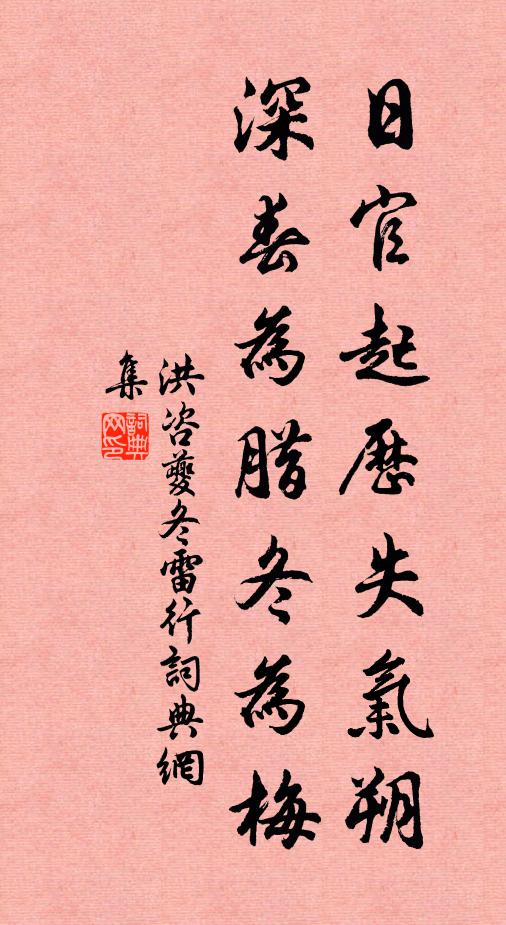 日官起歷失氣朔
深春為腊冬為梅
洪咨夔冬雷行詞典網
集
詞典
網印